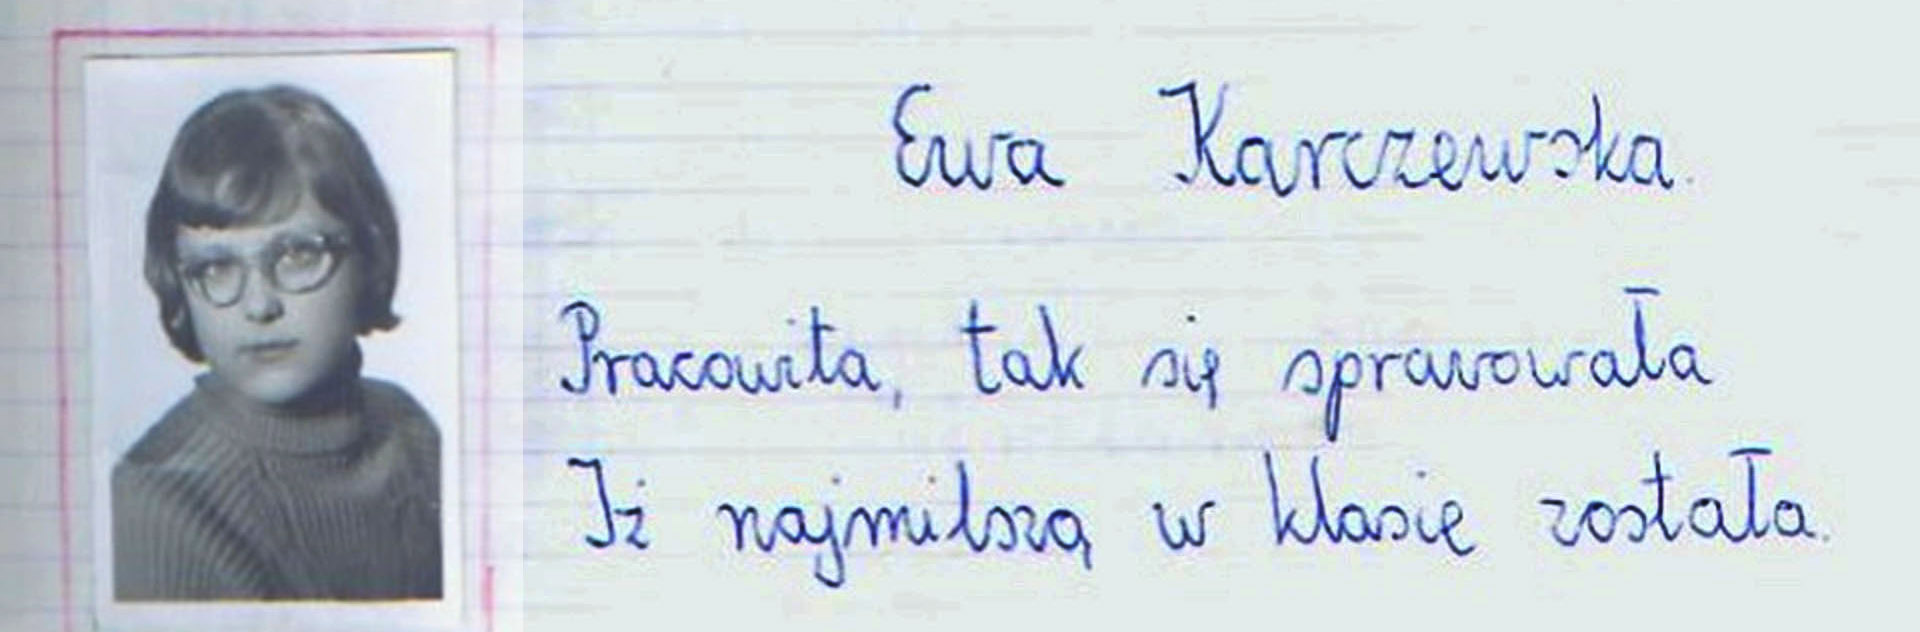 Ewa Karczewska.
Pracowita, tak się sprawowała
Iż najmilszą w klasię została.